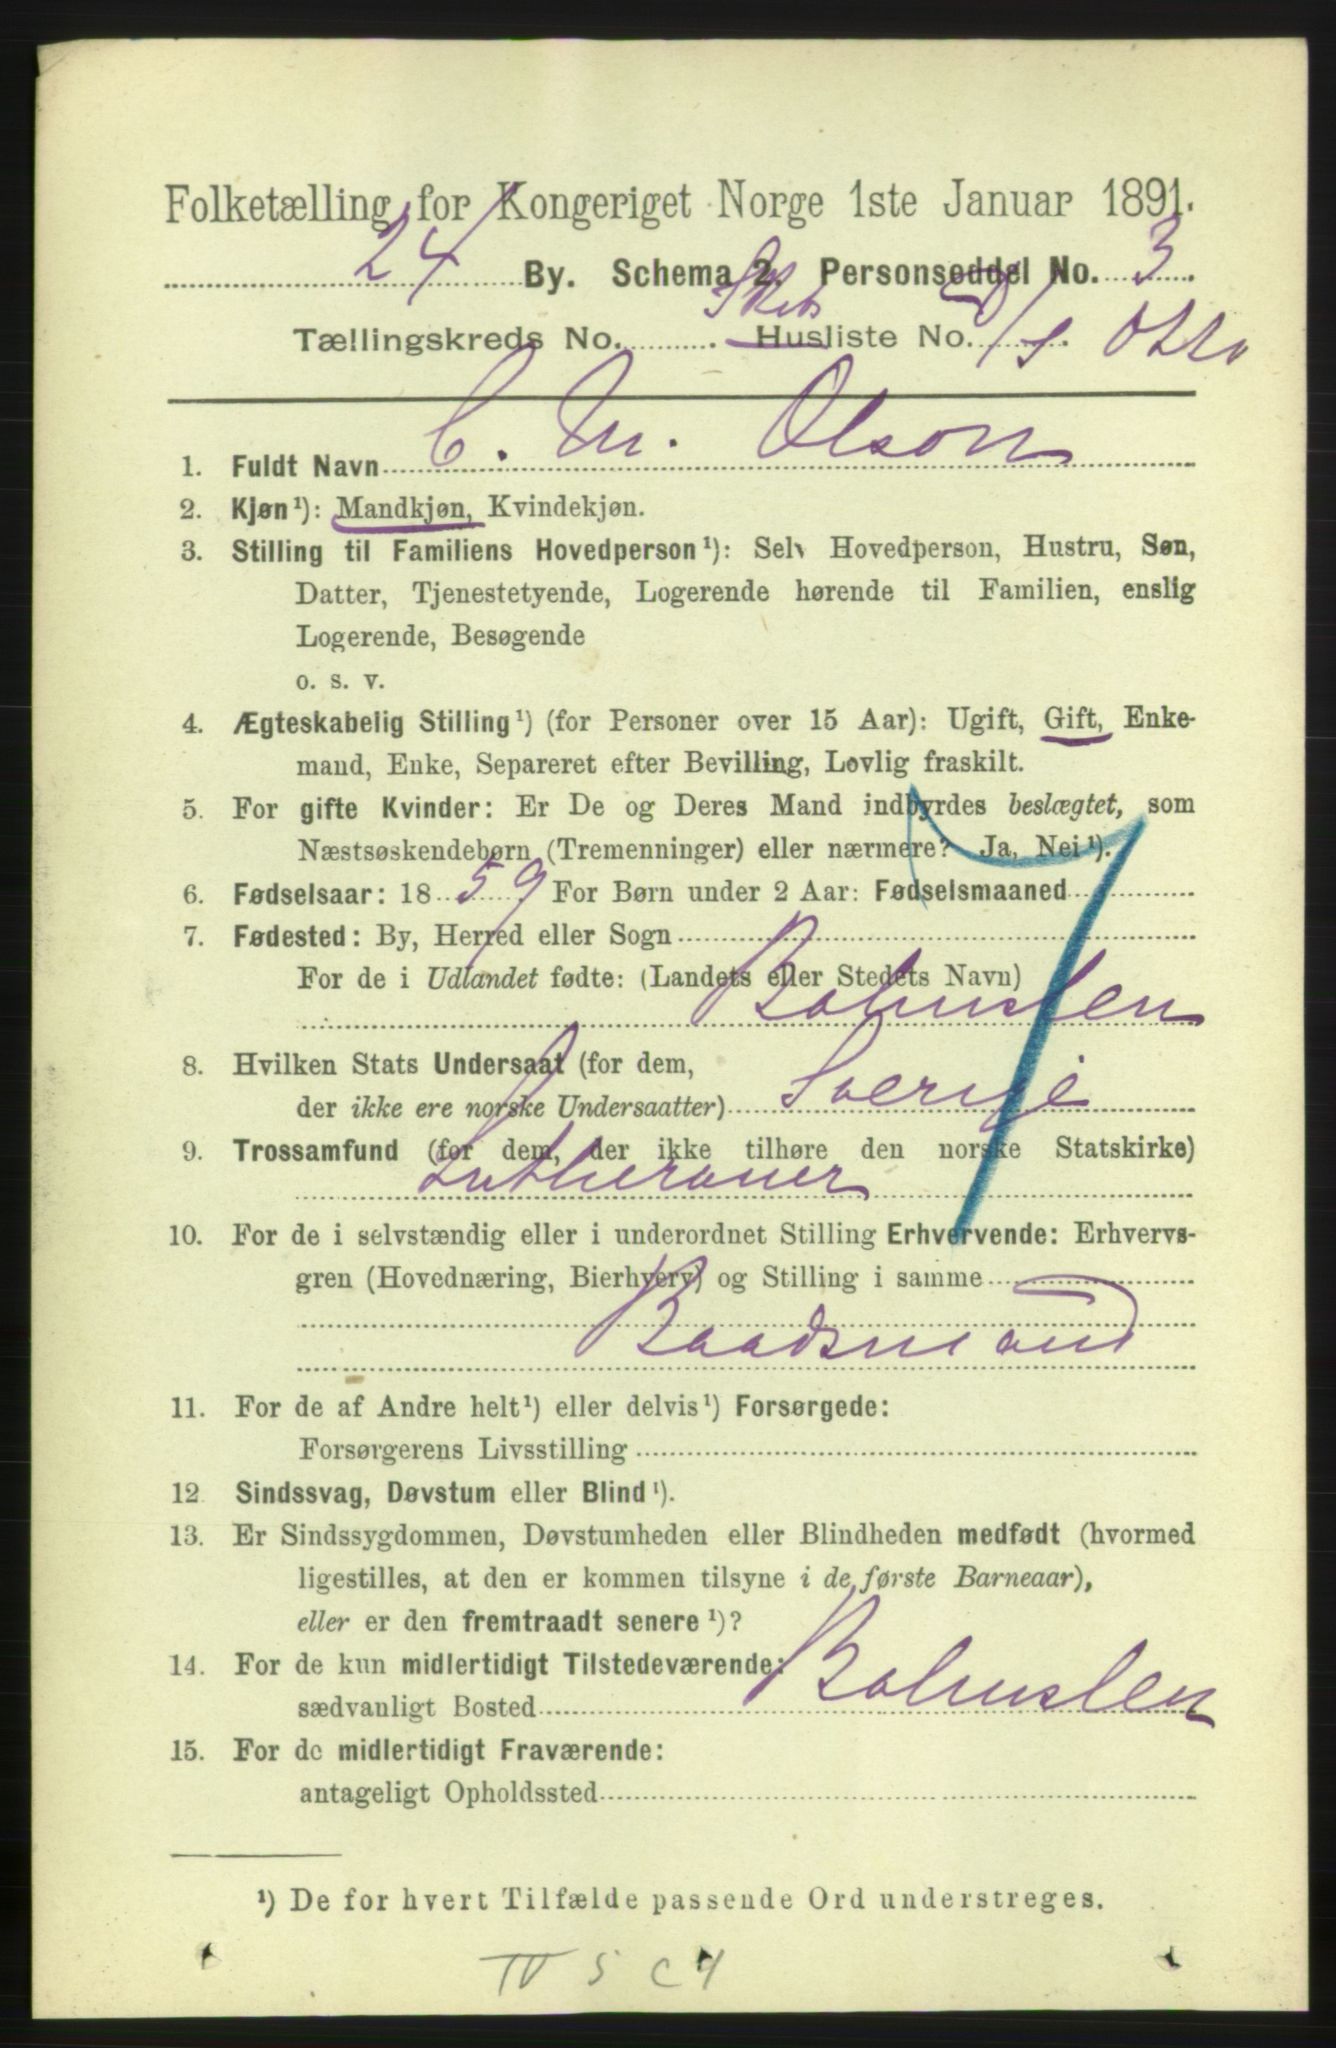 Folketælling for Kongeriget Norge 1ste Januar 1891.
24 By. Schema 2. Personseddel No. 3.
Tællingskreds No. Skibs Husliste No. Otto
1. Fuldt Navn C. M. Olson
2. Kjøn¹): Mandkjøn, Kvindekjøn.
3. Stilling til Familiens Hovedperson¹): Selv Hovedperson, Hustru, Søn,
Datter, Tjenestetyende, Logerende hørende til Familien, enslig
Logerende, Besøgende
o. s. v.
4. Ægteskabelig Stilling¹) (for Personer over 15 Aar): Ugift, Gift, Enke-
mand, Enke, Separeret efter Bevilling, Lovlig fraskilt.
5. For gifte Kvinder: Er De og Deres Mand indbyrdes beslægtet, som
Næstsøskendebørn (Tremenninger) eller nærmere? Ja, Nei¹).
6. Fødselsaar: 1859 For Børn under 2 Aar: Fødselsmaaned
7. Fødested: By, Herred eller Sogn
For de i Udlandet fødte: (Landets eller Stedets Navn)
Bohuslen
8. Hvilken Stats Undersaat (for dem,
der ikke ere norske Undersaatter) Sverige
9. Trossamfund (for dem, der ikke tilhøre den norske Statskirke)
Lutheraner
10. For de i selvstændig eller i underordnet Stilling Erhvervende: Erhvervs-
gren (Hovednæring, Bierhverv) og Stilling i samme
Baadsmand
11. For de af Andre helt¹) eller delvis¹) Forsørgede:
Forsørgerens Livsstilling
12 Sindssvag, Døvstum eller Blind¹).
13. Er Sindssygdommen, Døvstumheden eller Blindheden medfødt (hvormed
ligestilles, at den er kommen tilsyne i de første Barneaar),
eller er den fremtraadt senere¹)?
14. For de kun midlertidigt Tilstedeværende:
sædvanligt Bosted Bohuslen
15. For de midlertidigt Fraværende:
antageligt Opholdssted
¹) De for hvert Tilfælde passende Ord understreges.
IV 5 C 4